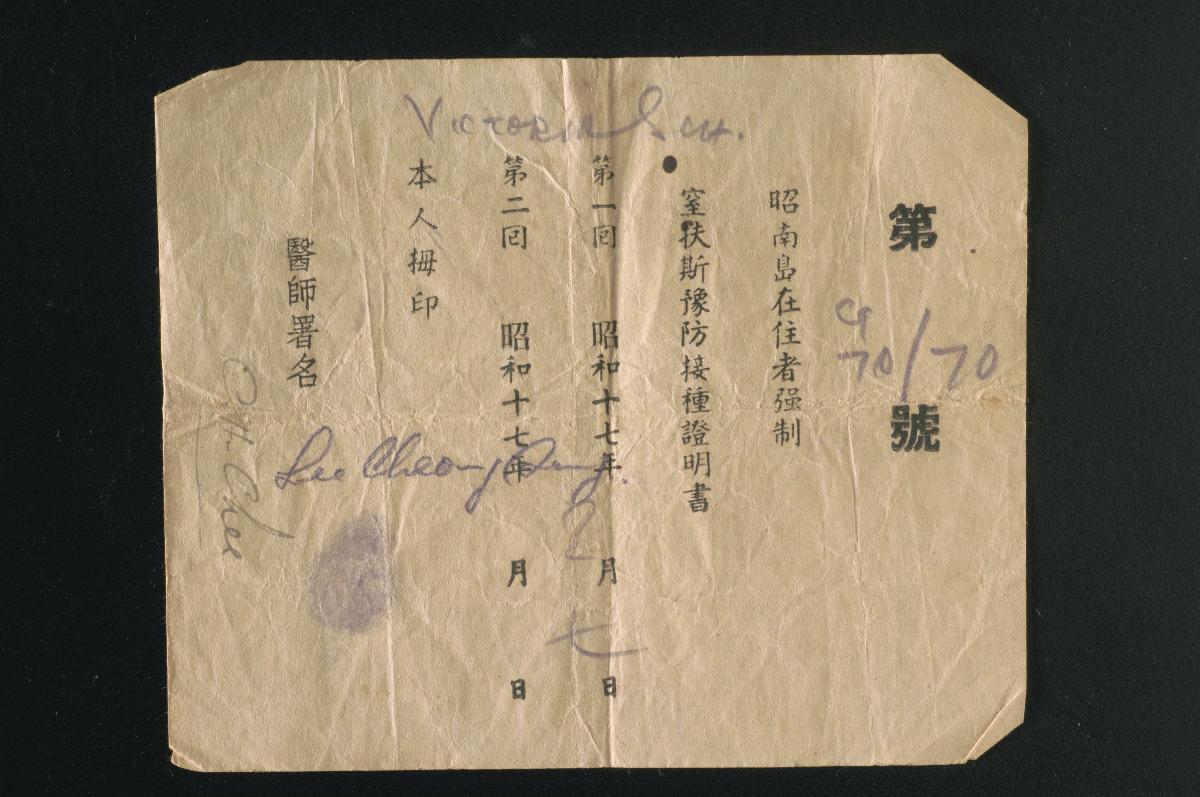 第 G 70/70 號
昭南島在住者强制
窒扶斯豫防接種證明書
第一回 昭和十七年 2月 七日
第二回 昭和十七年 月 日
本人拇印
醫師署名
Victoria
Lee Cheong
Chee